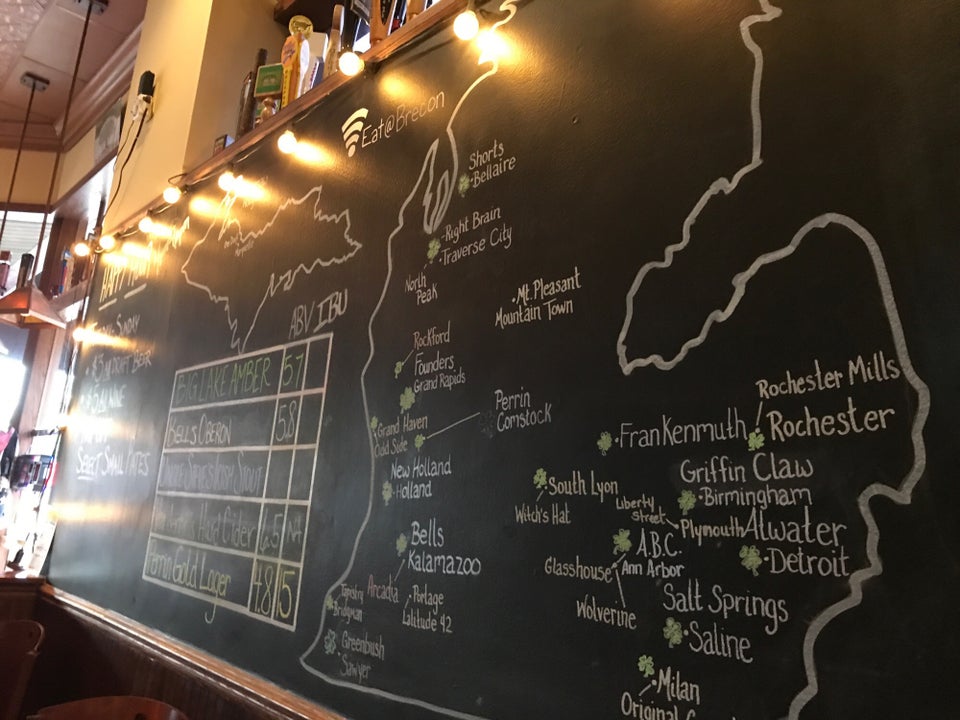 Eat@Brecon
Shorts
Bellaire
Right Brain
Traverse City
North
Peak
Mt. Pleasant
Mountain Town
ABV IBU
BIG LAKE AMBER 5.7
BELLS OBERON 5.8
Hard Cider 6.5 NA
Perrin Gold Lager 4.8 15
SUNDAY
DRAFT BEER
SELECT SMALL PLATES
Rockford
Founders
Grand Rapids
Perrin
Comstock
Grand Haven
Odd Side
New Holland
Holland
Bells
Kalamazoo
Arcadia
Portage
Latitude 42
Tapistry
Bridgman
Greenbush
Sawyer
Rochester Mills
Rochester
Frankenmuth
Griffin Claw
Birmingham
South Lyon
Witch's Hat
Liberty
Street
Plymouth
Atwater
Detroit
A.B.C.
Ann Arbor
Glasshouse
Wolverine
Salt Springs
Saline
Milan
Original